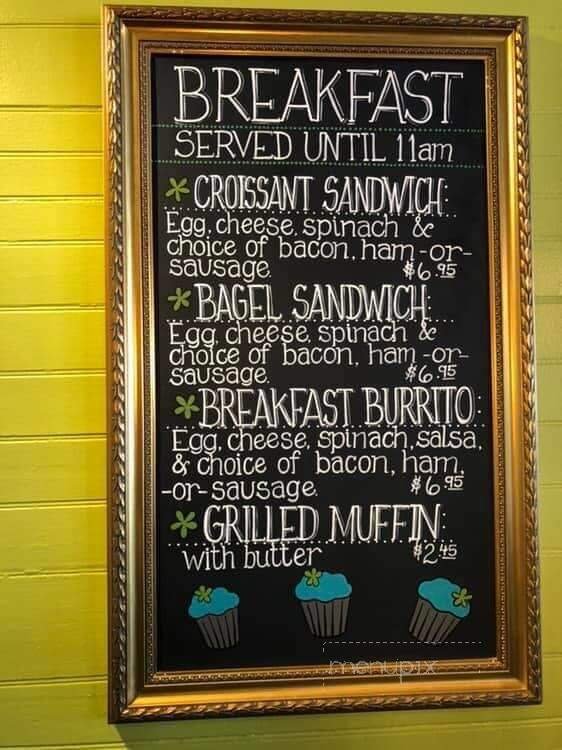 BREAKFAST
SERVED UNTIL 11am
CROISSANT SANDWICH:
Egg, cheese, spinach &
choice of bacon, ham -or-
sausage. $6.95
BAGEL SANDWICH:
Egg, cheese, spinach &
choice of bacon, ham -or-
sausage. $6.95
BREAKFAST BURRITO:
Egg, cheese, spinach, salsa,
& choice of bacon, ham,
-or- sausage. $6.95
GRILLED MUFFIN:
with butter $2.45
menupix